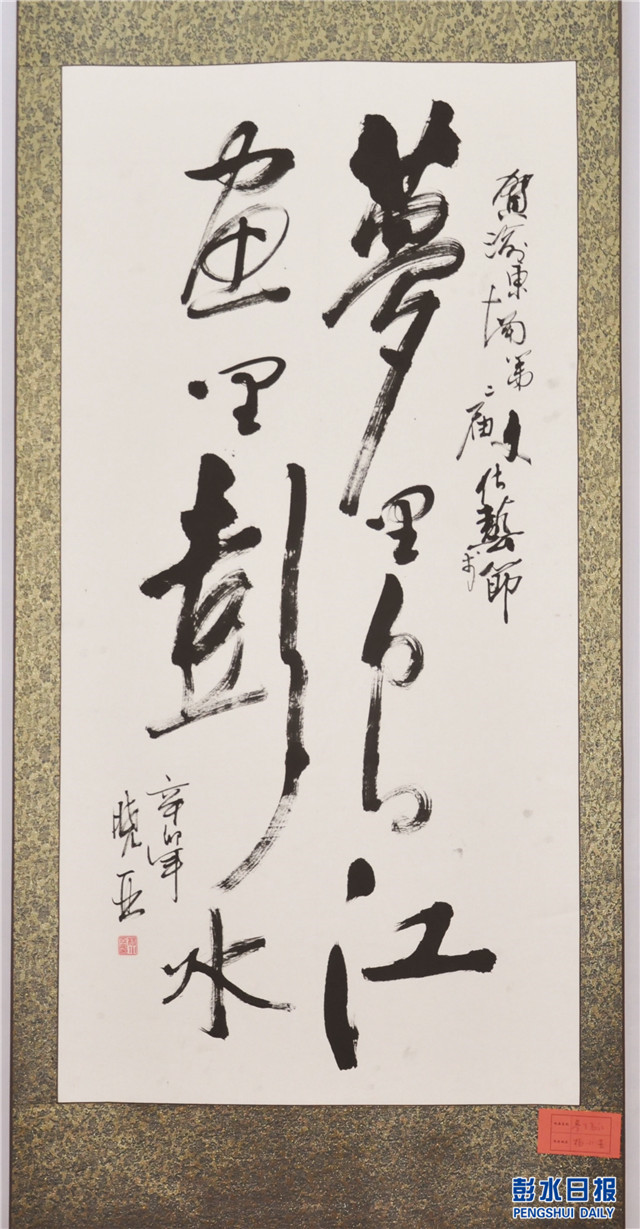 賀渝東南第二届文化藝术節
夢里乌江
画里彭水
辛卯年
晓亚
彭水日报
PENGSHUI DAILY